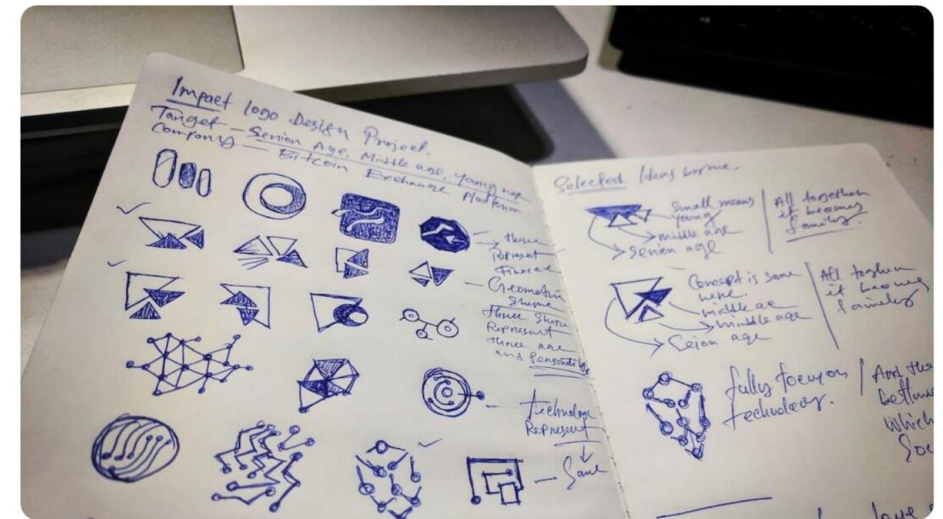 Impact logo Design Project.
Target - Senior Age, Middle age, Young age
Company - Bitcoin Exchange Platform
three
Represent
Finance
Geometric
Shape
three
Represent
three age
and
technology
Represent
Same
Selected Ideas
Small means
young
middle age
Senior age
All together
it becomes
family.
Concept is same
here
middle ae
middle age
Seion age
All togher
it becomes
family
fully focus on
technology.
And the
Which